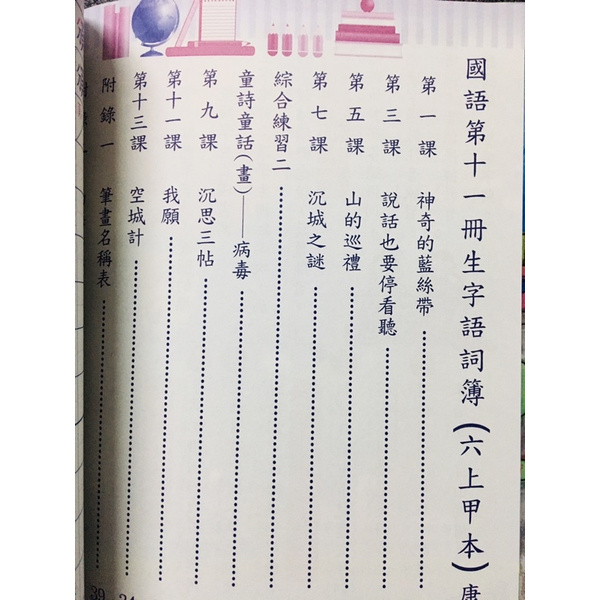 國語第十一冊生字語詞簿(六上甲本)康
第一課 神奇的藍絲帶
第三課 說話也要停看聽
第五課 山的巡禮
第七課 沉城之謎
綜合練習二
童詩童話(畫)——病毒
第九課 沉思三帖
第十一課 我願
第十三課 空城計
附錄一 筆畫名稱表